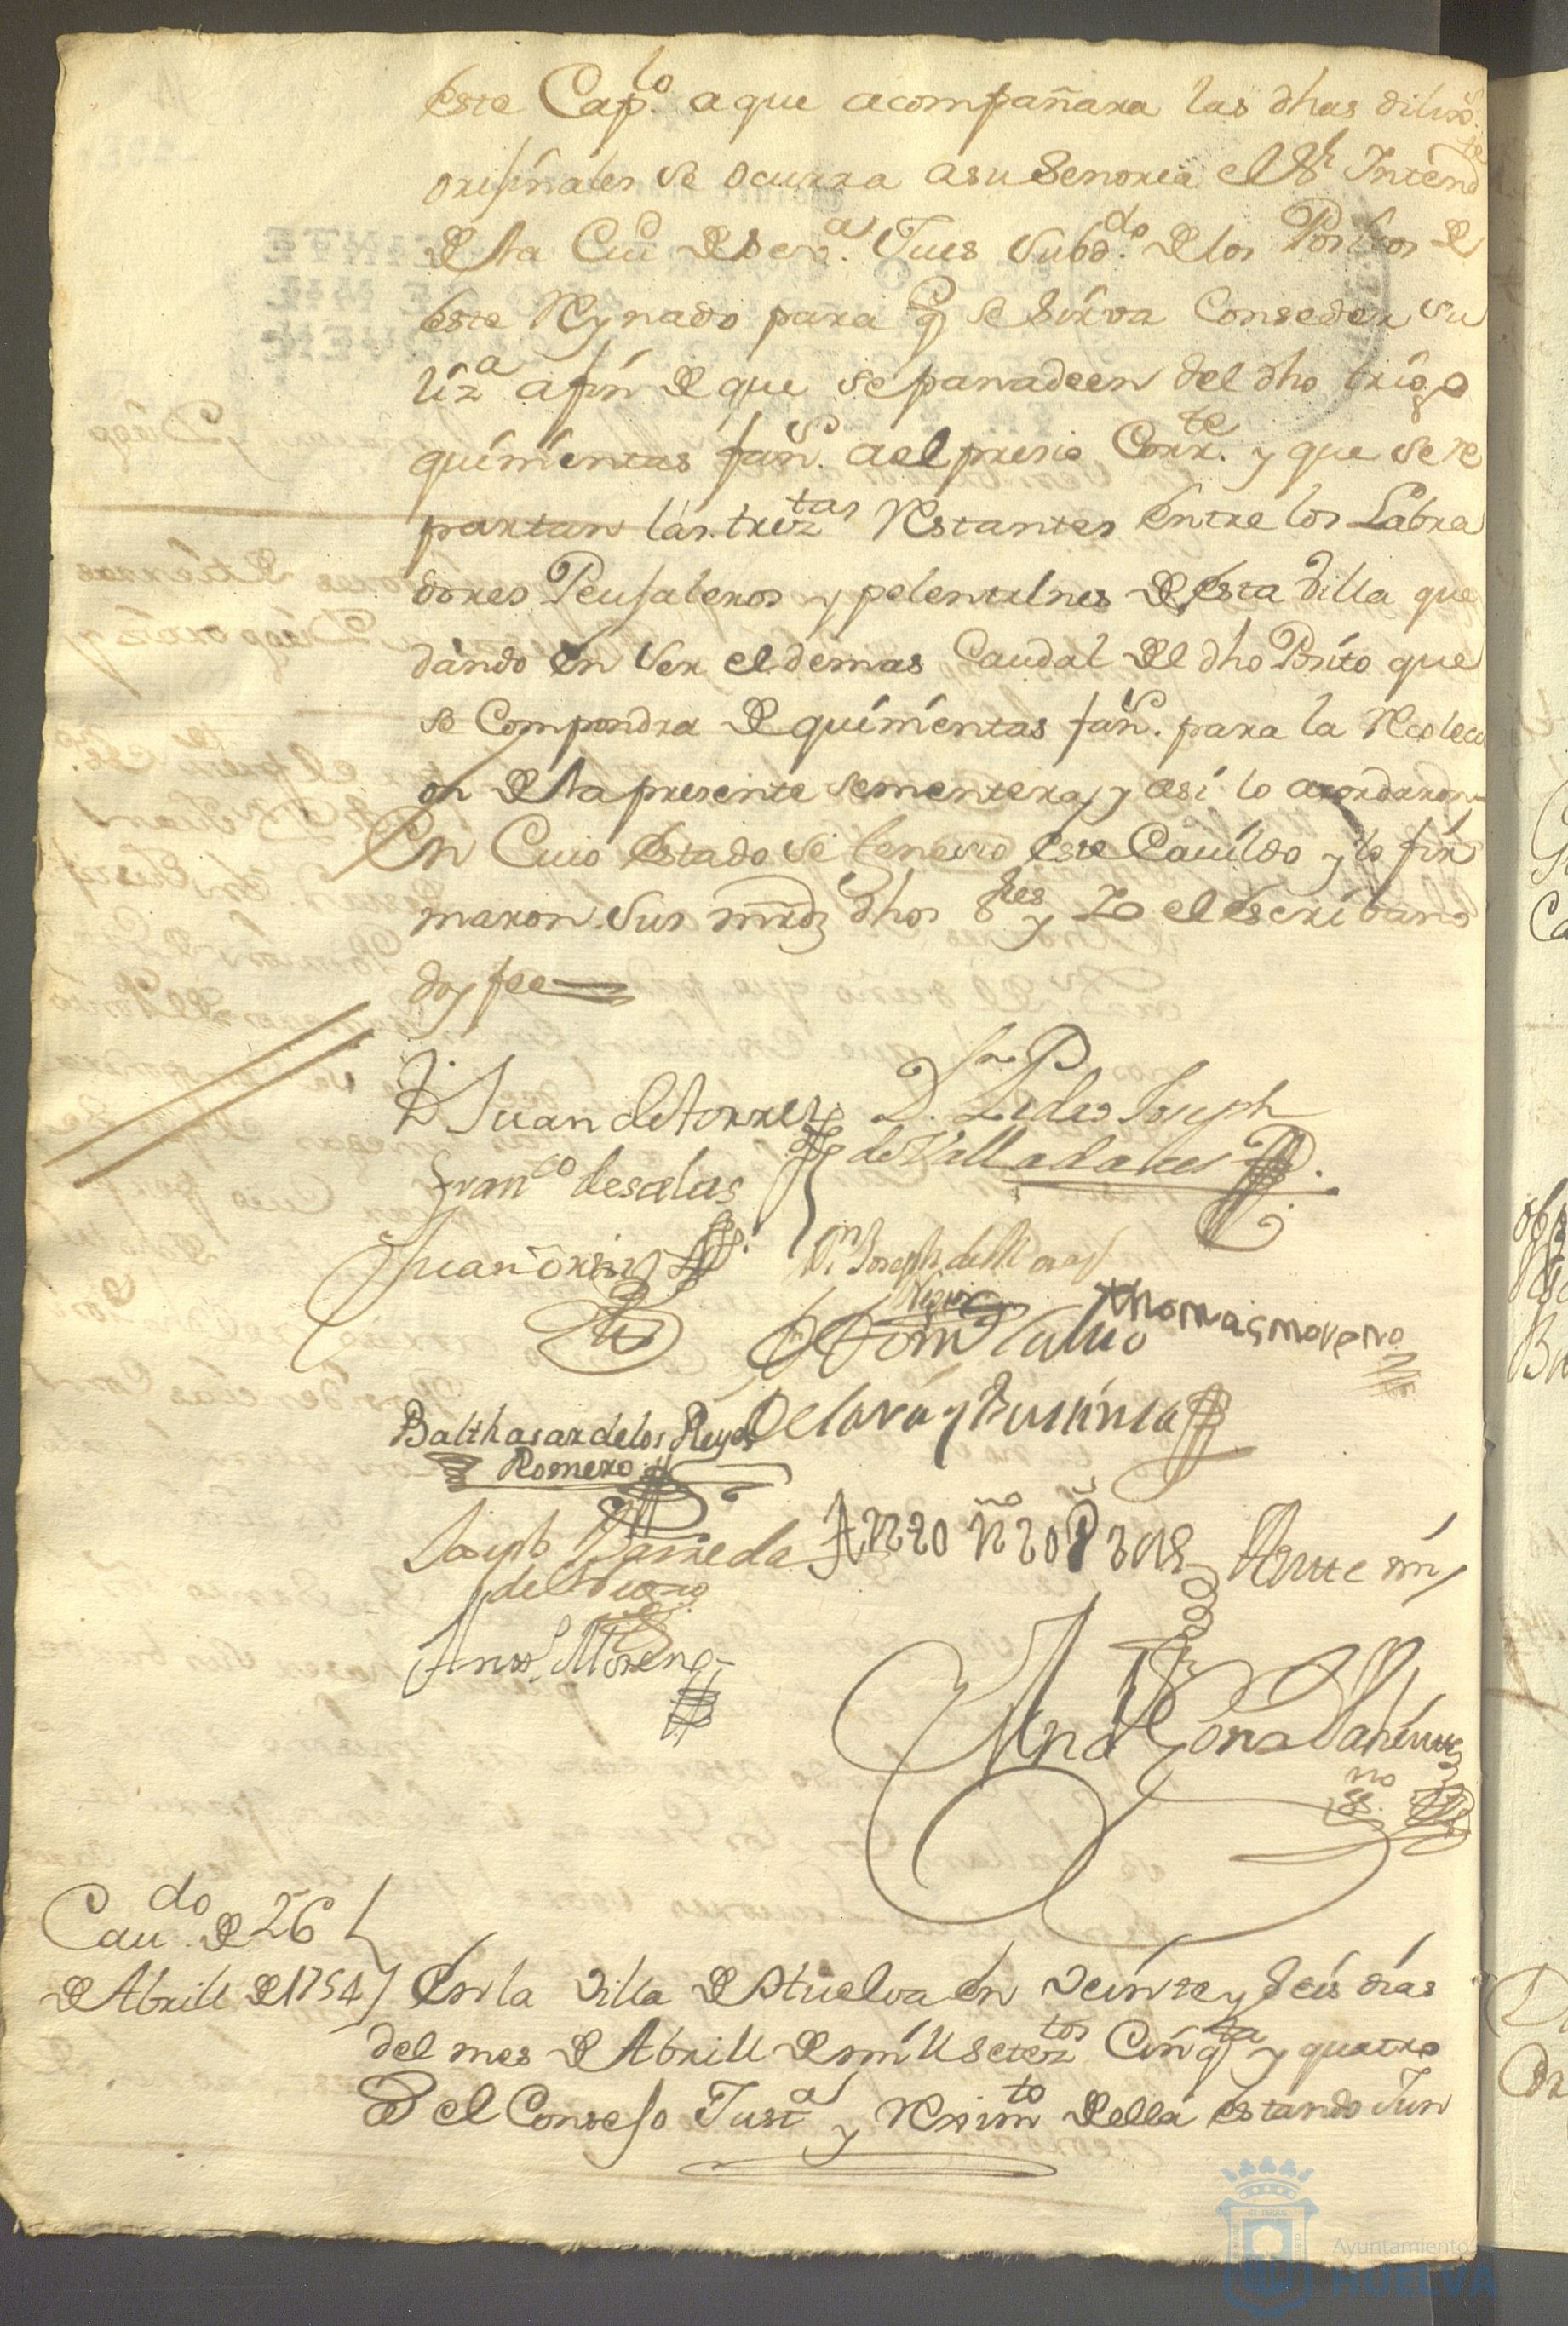 este Cap.lo a que acompañara las dhas dilixs.
orijinales se ocurra a su Senoria el Sr. Intendte
de la Ciud de Seva. Jues Subddo. de los Positos de
este Reynado para q se sirva Conseder su
liza a fin de que se panadeen del dho trigo
quinientas fans. a el presio Corrte. y que se re
partan las treztas Restantes entre los Labra
dores Peujaleros y pelentrines de esta Villa que
dando en ser el demas Caudal del dho Posito que
se Compondra de quinientas fans. para la Recolecci
on de la presente sementera, y asi lo acordaron
En Cuio estado se fenesio este Cavildo y lo fir
maron sus mrdz dhos Sres y Yo el escribano
doy fee
Dn Juan de torres
Dn. Pedro Joseph
de Valladares
Franco de salas
Juan ortiz
Dn Joseph de
thomas moreno
Calvo
Balthasar delos Reyes
Romero
Joseph Barreda
Antte mi
Anto Moreno
sno
Caudo de 26
de Abrill de 1754
En la Villa de Huelva en veinte y seis dias
del mes de Abrill de mill seteztos Cinqta y quatro
el Consejo Justa y Reximto de ella estando Jun
Ayuntamiento
HUELVA